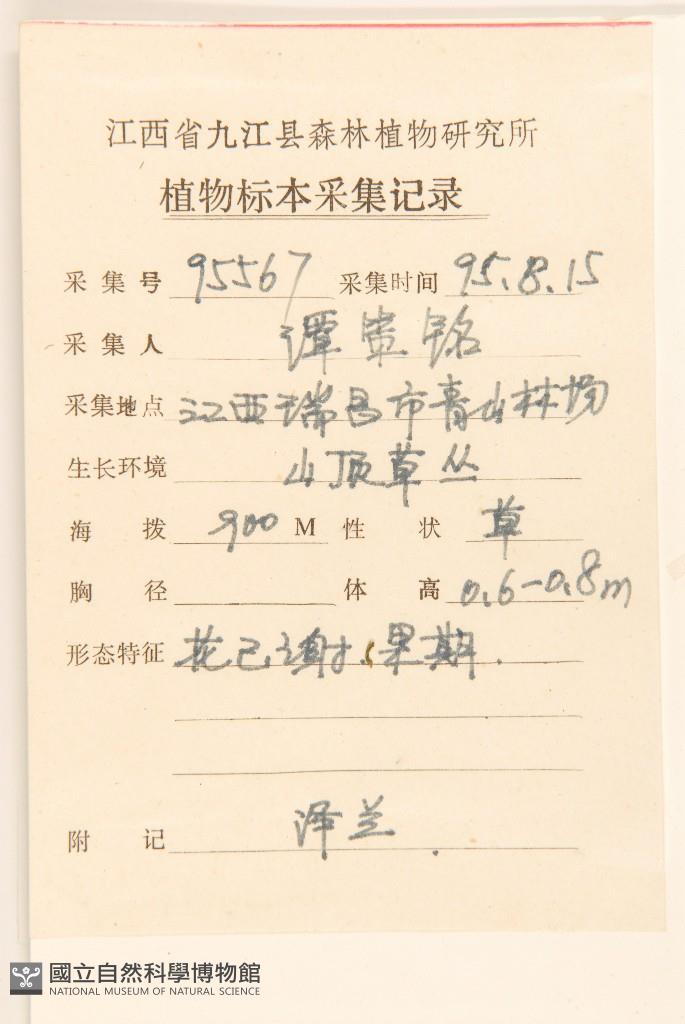 江西省九江县森林植物研究所
植物标本采集记录
采集号 95567 采集时间 95.8.15
采集人 谭策铭
采集地点 江西瑞昌市青山林场
生长环境 山顶草丛
海拨 900 M 性状 草
胸径 体高 0.6-0.8m
形态特征 花已谢,果期.
附记 泽兰
國立自然科學博物館
NATIONAL MUSEUM OF NATURAL SCIENCE